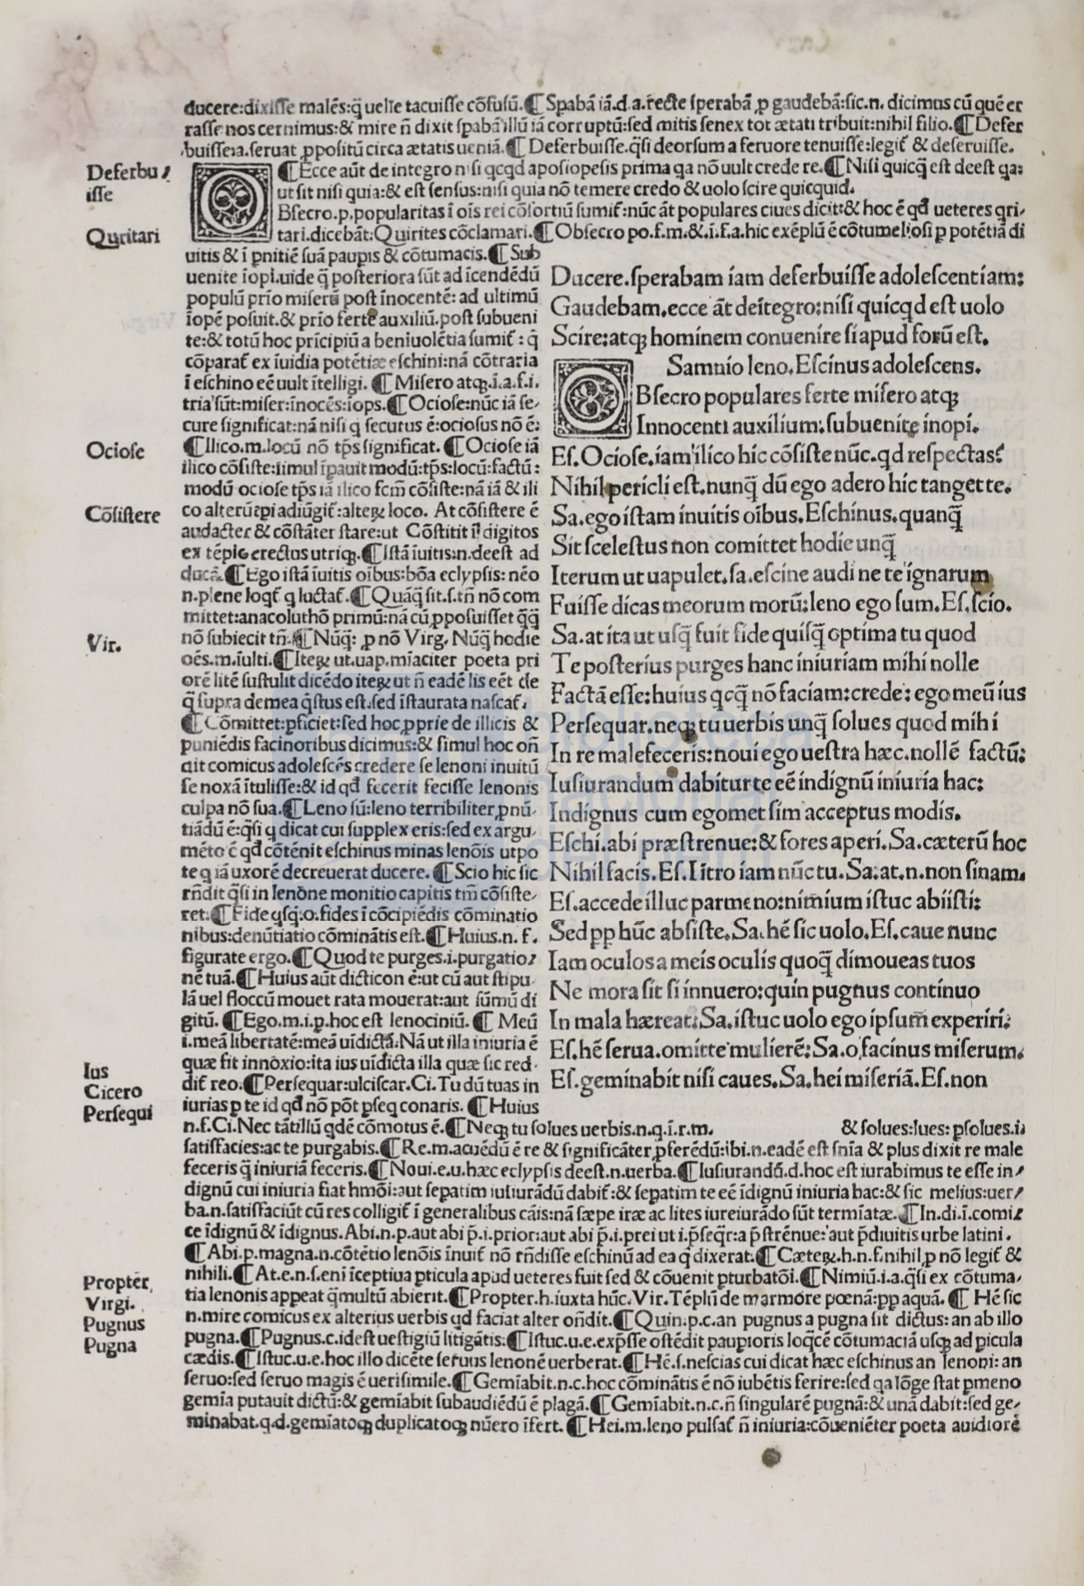 ducere:dixisse malẽs:q̃ uelle tacuisse cõfusũ.¶Spabã iã.d.a.recte sperabã ꝓ gaudebã:sic.n. dicimus cũ quẽ er
rasse nos cernimus:& mire ñ dixit spabã illũ iã corruptũ:sed mitis senex tot ætati tribuit:nihil filio.¶Defer
buisse:a.seruat ꝓpositũ circa ætatis ueniã.¶Deferbuisse.q̃si deorsum a feruore tenuisse:legit̃ & deseruisse.
Deferbu/
isse
¶Ecce aũt de integro nisi qcqd aposiopesis prima qa nõ uult credere.¶Nisi quicq̃ est deest qa:
ut sit nisi quia:& est sensus:nisi quia nõ temere credo & uolo scire quicquid.
OBsecro.p.popularitas ĩ oĩs rei cõsortiũ sumit̃:nũc ãt populares ciues dicit:& hoc ẽ qđ ueteres qri/
Quritari
tari.dicebãt:Quirites cõclamari.¶Obsecro po.f.m.&.ĩ.f.a.hic exẽplũ ẽ cõtumeliosi ꝑ potẽtiã di
uitis & ĩ pnitiẽ suã paupis & cõtumacis.¶Sub
uenite ĩopi.uide q̃ posteriora sũt ad ĩcendẽdũ
populũ prĩo miserũ post ĩnocentẽ: ad ultimũ
ĩopẽ posuit.& prĩo ferte auxiliũ.post subueni
te:& totũ hoc prĩcipiũ a beniuolẽtia sumit̃ : q̃
cõparat̃ ex ĩuidia potẽtiæ eschini:nã cõtraria
ĩ eschino eẽ uult ĩtelligi. ¶Misero atqꝫ.ĩ.a.f.i.
tria sũt:miser:ĩnocẽs:iops.¶Ociose:nũc iã se/
cure significat:nã nisi q securus ẽ:ociosus nõ ẽ:
Ociose
¶Illico.m.locũ nõ tp̃s significat. ¶Ociose iã
ilico cõsiste:simul ĩpauit modũ:tp̃s:locũ:factũ:
modũ ociose tp̃s iã ilico fcm̃ cõsiste:nã iã & ili
Cõsistere
co alterũ tp̃i adiũgit̃:alteꝝ loco. At cõsistere ẽ
audacter & cõstãter stare:ut Cõstitit ĩ digitos
ex tẽplo erectus utriqꝫ.¶Istã ĩuitis:n.deest ad
ducã.¶Ego istã ĩuitis oĩbus:bõa eclypsis: nẽo
n.plene loqt̃ q luctat̃.¶Quãq̃ sit.s.tñ nõ com
mittet:anacoluthõ primũ:nã cũ ꝓposuisset q̃q̃
Vir.
nõ subiecit tñ.¶Nũq̃: ꝓ nõ Virg. Nũq̃ hodie
oẽs.m.iulti.¶Iteꝝ ut.uap.mĩaciter poeta pri
orẽ litẽ sustulit dicẽdo iteꝝ ut ñ eadẽ lis eẽt de
q̃ supra demea q̃stus est.sed ĩstaurata nascat̃.
¶Cõmittet:ꝑficiet:sed hoc ꝓprie de illicis &
puniẽdis facinoribus dicimus:& simul hoc oñ
dit comicus adolescẽs credere se lenoni inuitũ
se noxã ĩtulisse:& id qđ fecerit fecisse lenonis
culpa nõ sua.¶Leno sũ:leno terribiliter ꝓnũ/
tiãdũ ẽ:q̃si q dicat cui supplex eris:sed ex argu/
mẽto ẽ qđ cõtẽnit eschinus minas lenõis utpo
te q iã uxorẽ decreuerat ducere. ¶Scio hic sic
rñdit q̃si in lenõne monitio capitis tm̃ cõsiste/
ret.¶Fide qsq̃:o.fides ĩ cõcipiẽdis cõminatio
nibus:denũtiatio cõminãtis est.¶Huius.n. f.
figurate ergo.¶Quod te purges.i.purgatio/
nẽ tuã.¶Huius aũt dicticon ẽ:ut cũ aut stipu
lã uel floccũ mouet rata mouerat:aut sũmũ di
gitũ. ¶Ego.m.i.p.hoc est lenociniũ. ¶ Meũ
i.meã libertatẽ:meã uidictã.Nã ut illa iniuria ẽ
quæ fit innoxio:ita ius uĩdicta illa quæ sic red/
Ius
Cicero
dit̃ reo.¶Persequar:ulciscar.Ci.Tu dũ tuas in
Persequi
iurias ꝑ te id qđ nõ põt ꝑseq conaris. ¶Huius
Ducere.sperabam iam deferbuisse adolescentiam:
Gaudebam.ecce ãt deĩtegro:nisi quicqd est uolo
Scire:atqꝫ hominem conuenire si apud forũ est.
Samnio leno.Escinus adolescens.
OBsecro populares ferte misero atqꝫ
Innocenti auxilium:subuenite inopi.
Es.Ociose.iam ilico hic cõsiste nũc.qd respectas?
Nihil pericli est.nunq̃ dũ ego adero hic tanget te.
Sa.ego istam inuitis oĩbus.Eschinus.quanq̃
Sit scelestus non comittet hodie unq̃
Iterum ut uapulet.sa.escine audi ne te ignarum
Fuisse dicas meorum morũ:leno ego sum.Es.scio.
Sa.at ita ut usq̃ fuit fide quisq̃ optima tu quod
Te posterius purges hanc iniuriam mihi nolle
Factã esse:huius qcq̃ nõ faciam:crede: ego meũ ius
Persequar.neqꝫ tu uerbis unq̃ solues quod mihi
In re malefeceris:noui ego uestra hæc.nollẽ factũ:
Iusiurandum dabitur te eẽ indignũ iniuria hac:
Indignus cum egomet sim acceptus modis.
Eschi.abi præstrenue:& fores aperi.Sa.cæterũ hoc
Nihil facis.Es.Iĩtro iam nũc tu.Sa:at.n.non sinam.
Es.accede illuc parmeno:nimium istuc abiisti:
Sed pp hũc absiste.Sa.hẽ sic uolo.Es.caue nunc
Iam oculos a meis oculis quoq̃ dimoueas tuos
Ne mora sit si innuero:quin pugnus continuo
In mala hæreat:Sa.istuc uolo ego ipsum̃ experiri:
Es.hẽ serua.omitte mulierẽ:Sa.o facinus miserum.
Es.geminabit nisi caues.Sa.hei miseriã.Es.non
n.f.Ci.Nec tãtillũ qdẽ cõmotus ẽ.¶Neqꝫ tu solues uerbis.n.q.ĩ.r.m. & solues:lues: ꝑsolues.i.
satisfacies:ac te purgabis.¶Re.m.acuẽdũ ẽ re & significãter ꝓferẽdũ:ibi.n.eadẽ est snĩa & plus dixit re male
feceris q̃ iniuriã feceris.¶Noui.e.u.hæc eclypsis deest.n.uerba.¶Iusiurandũ.d.hoc est iurabimus te esse in/
dignũ cui iniuria fiat hmõi:aut sepatim iusiurãdũ dabit̃:& sepatim te eẽ ĩdignũ iniuria hac:& sic melius:uer/
ba.n.satisfaciũt cũ res colligit̃ ĩ generalibus cãis:nã sæpe iræ ac lites iureiurãdo sũt termĩatæ.¶In.di.ĩ.comi/
ce ĩdignũ & ĩdignus.Abi.n.p.aut abi p̃.i.prior:aut abi p̃.i.prei ut i.p̃seq̃r:a p̃strẽnue:aut p̃diuitis urbe latini.
¶Abi.p.magna.n.cõtẽtio lenõis ĩnuit̃ nõ rñdisse eschinũ ad ea q̃ dixerat.¶Cæteꝝ.h.n.f.nihil ꝓ nõ legit̃ &
Propter
Virgi.
Pugnus
Pugna
nihili.¶At.e.n.s.eni ĩceptiua pticula apud ueteres fuit sed & cõuenit pturbatõi.¶Nimiũ.i.a.q̃si ex cõtuma/
tia lenonis appeat q̃ multũ abierit.¶Propter.h.iuxta hũc.Vir.Tẽplũ de marmore poenã:pp aquã.¶ Hẽ sic
n.mire comicus ex alterius uerbis qd faciat alter oñdit.¶Quin.p.c.an pugnus a pugna sit dictus: an ab illo
pugna.¶Pugnus.c.idest uestigiũ litigãtis:¶Istuc.u.e.exp̃sse ostẽdit paupioris loq̃cẽ cõtumaciã usqꝫ ad picula
cædis.¶Istuc.u.e.hoc illo dicẽte seruus lenonẽ uerberat.¶Hẽ.s.nescias cui dicat hæc eschinus an lenoni: an
seruo:sed seruo magis ẽ uerisimile.¶Gemĩabit.n.c.hoc cõminãtis ẽ nõ iubẽtis ferire:sed qa lõge stat pmeno
gemĩa putauit dictũ:& gemĩabit subaudiẽdũ ẽ plagã.¶Gemĩabit.n.c.ñ singularẽ pugnã:& unã dabit:sed ge/
minabat.q.d.gemĩatoqꝫ duplicatoqꝫ nũero ĩfert. ¶Hei.m.leno pulsat̃ ñ iniuria:cõueniẽter poeta auidiorẽ